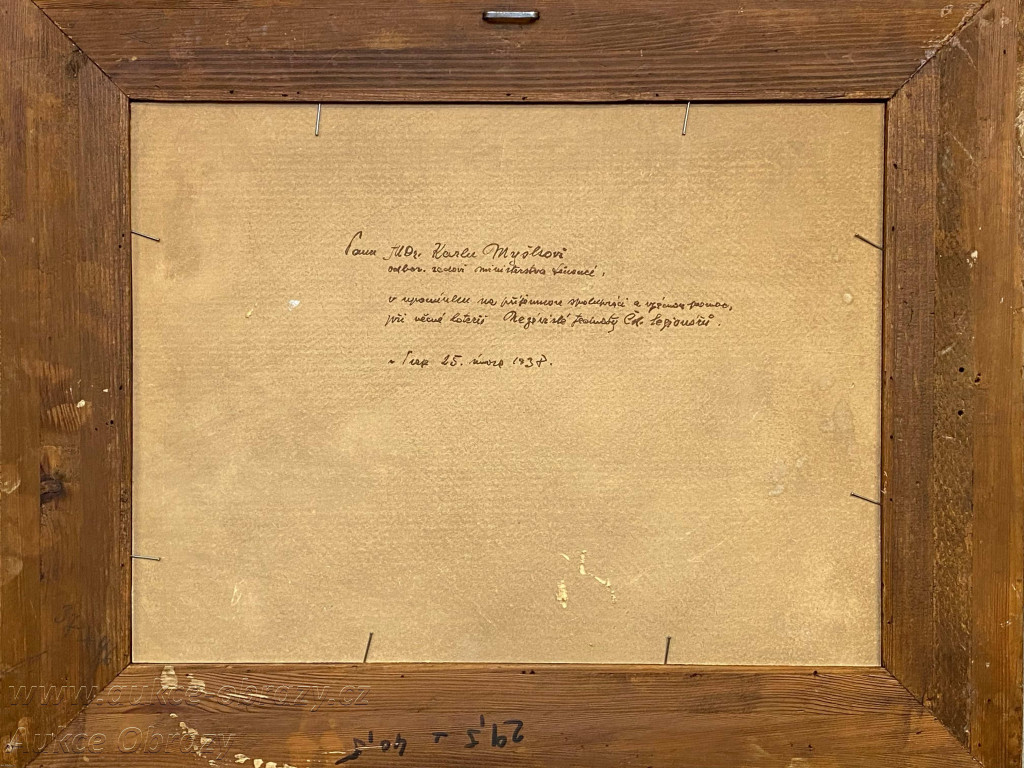 Panu JUDr. Karlu Myškovi
odbor. radovi ministerstva financí,
v upomínku na příjemnou spolupráci a vzácnou pomoc,
při věcné loterii Nezávislé Jednoty Čsl. Legionářů.
25. února 1938.
www.aukce-obrazy.cz
Aukce Obrazy
29,5 x 40,5